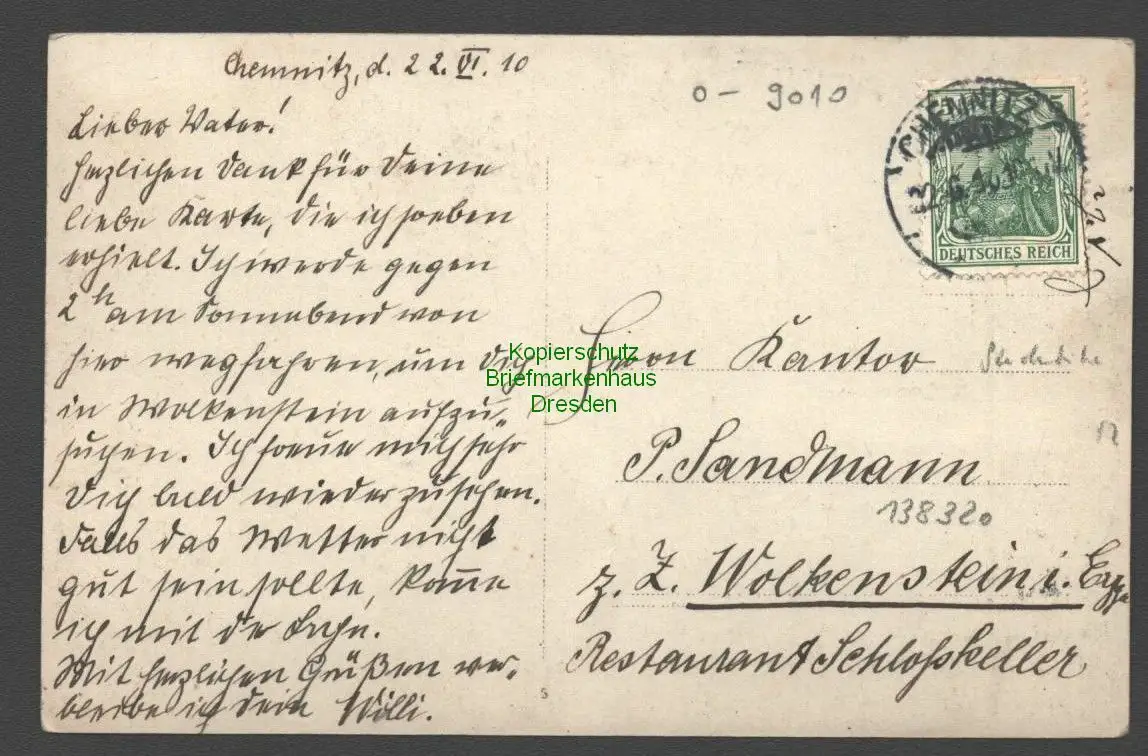 Chemnitz, d. 22.VI.10
Lieber Vater!
herzlichen Dank für Deine
liebe Karte, die ich soeben
erhielt. Ich werde gegen
2h am Sonnabend von
hier wegfahren, um Dich
in Wolkenstein aufzu-
suchen. Ich freue mich sehr
Dich bald wiederzusehen.
Falls das Wetter nicht
gut sein sollte, kom̅e
ich mit der Bahn.
Mit herzlichen Grüßen ver-
bleibe ich dein Willi.
0 - 9010
CHEMNITZ
DEUTSCHES REICH
Herrn Kantor
P. Sandmann
138320
z. Z. Wolkenstein i. Erzg.
Restaurant Schloßkeller
Kopierschutz
Briefmarkenhaus
Dresden
S
12